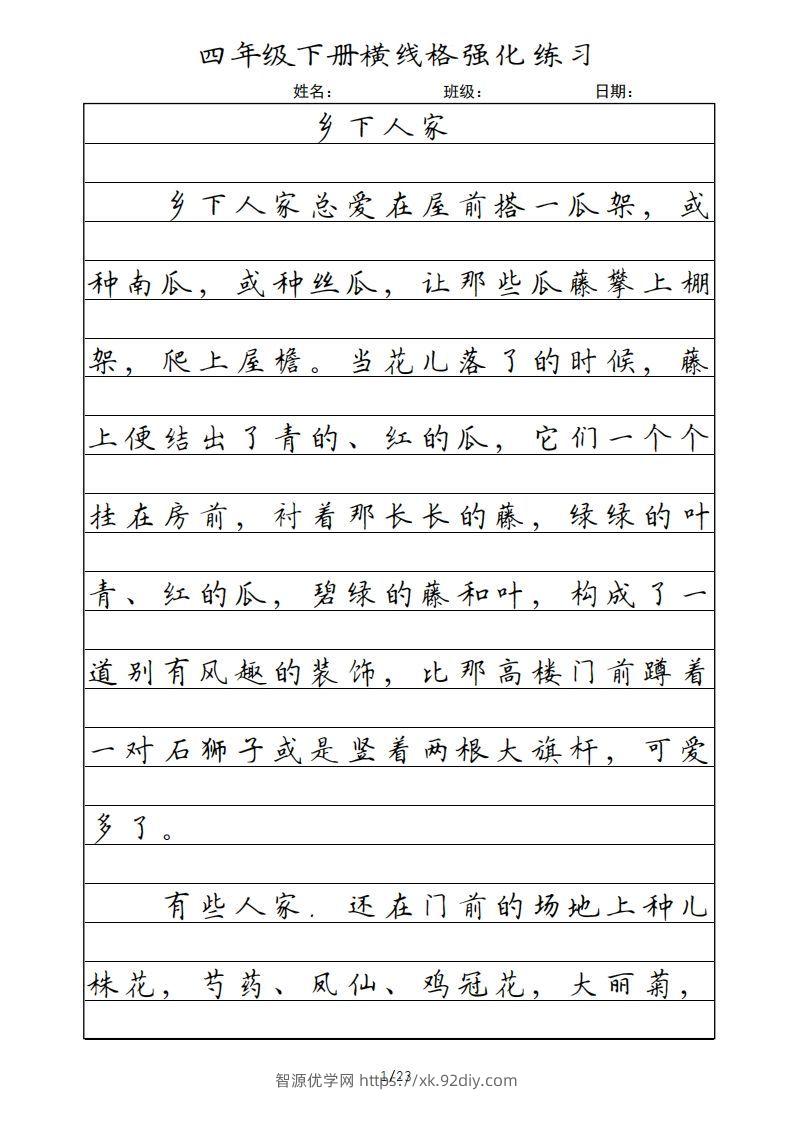 四年级下册横线格强化练习
姓名： 班级： 日期：
乡下人家
乡下人家总爱在屋前搭一瓜架，或
种南瓜，或种丝瓜，让那些瓜藤攀上棚
架，爬上屋檐。当花儿落了的时候，藤
上便结出了青的、红的瓜，它们一个个
挂在房前，衬着那长长的藤，绿绿的叶
青、红的瓜，碧绿的藤和叶，构成了一
道别有风趣的装饰，比那高楼门前蹲着
一对石狮子或是竖着两根大旗杆，可爱
多了。
有些人家．还在门前的场地上种儿
株花，芍药、凤仙、鸡冠花，大丽菊，
1/23
智源优学网 https://xk.92diy.com